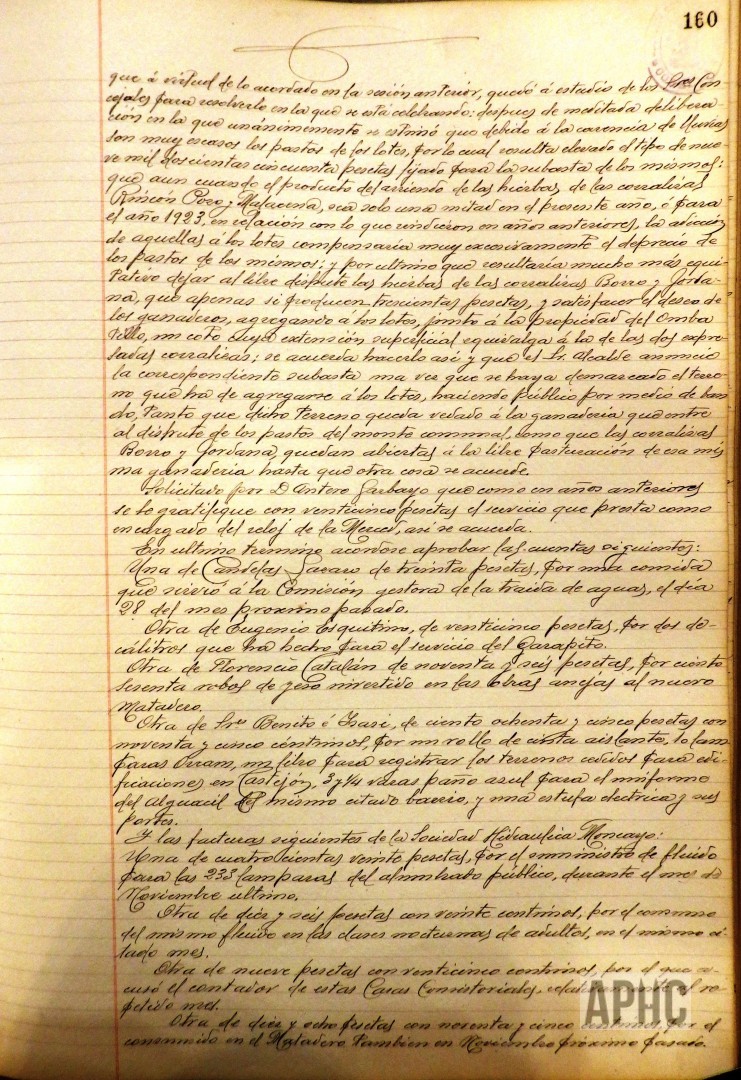 160
que á virtud de lo acordado en la sesión anterior, quedó á estudio de los Sres Con
cejales para resolverlo en la que se está celebrando: despues de meditada delibera-
ción en la que unánimemente se estimó que debido á la carencia de lluvias
son muy escasos los pastos de los lotes, por lo cual resulta elevado el tipo de nue-
ve mil doscientas cincuenta pesetas fijado para la subasta de los mismos:
que aun cuando el producto del arriendo de las hierbas, de las corralizas
Rincón Poro y Mulacena, sea solo una mitad en el presente año, ó para
el año 1923, en relación con lo que rindieron en años anteriores, la adición
de aquellas á los lotes compensaría muy excesivamente el deprecio de
los pastos de los mismos; y por ultimo que resultaría mucho más equi-
tativo dejar al libre disfrute las hierbas de las corralizas Borro y Jorda-
na, que apenas si producen trescientas pesetas, y satisfacer el deseo de
los ganaderos, agregando á los lotes, junto á la propiedad del Omba
tillo, un coto cuya extensión superficial equivalga á la de las dos expre-
sadas corralizas; se acuerda hacerlo así y que el Sr. Alcalde anuncie
la correspondiente subasta una vez que se haya demarcado el terre-
no que ha de agregarse á los lotes, haciendo público por medio de ban-
do, tanto que dicho terreno queda vedado á la ganaderia que entre
al disfrute de los pastos del monte comunal, como que las corralizas
Borro y Jordana, quedan abiertas á la libre pasturación de esa mis
ma ganaderia hasta que otra cosa se acuerde.
Solicitado por D. Antero Garbayo que como en años anteriores
se le gratifique con veinticinco pesetas el servicio que presta como
encargado del reloj de la Merced, así se acuerda.
En ultimo termino acordose aprobar las cuentas siguientes:
Una de Candelas Lavaro de treinta pesetas, por una comida
que sirvió á la Comisión gestora de la traida de aguas, el día
28 del mes proximo pasado.
Otra de Eugenio Esquitino, de venticinco pesetas, por dos de-
cálitros que ha hecho para el servicio del Garapito.
Otra de Florencio Catalán de noventa y seis pesetas, por ciento
sesenta robos de yeso invertido en las obras anejas al nuevo
Matadero.
Otra de Sres Benito é Isasi, de ciento ochenta y cinco pesetas con
noventa y cinco céntimos, por un rollo de cinta aislante, 10 lám
paras Osram, un libro para registrar los terrenos cedidos para edi-
ficaciones en Castejón, 3 y 1/4 varas paño azul para el uniforme
del Alguacil del mismo citado barrio, y una estufa electrica y sus
portes.
Y las facturas siguientes de la Sociedad Hidraulica Moncayo:
Una de cuatrocientas veinte pesetas, por el suministro de fluido
para las 233 lamparas del alumbrado público, durante el mes de
Noviembre ultimo.
Otra de diez y seis pesetas con veinte centimos, por el consumo
del mismo fluido en las clases nocturnas de adultos, en el mismo ci-
tado mes.
Otra de nueve pesetas con venticinco centimos, por el que a-
cusó el contador de estas Casas Consistoriales, el re-
petido mes.
Otra de diez y ocho pesetas con noventa y cinco centimos, por el
consumido en el Matadero tambien en Noviembre próximo pasado.
APHC